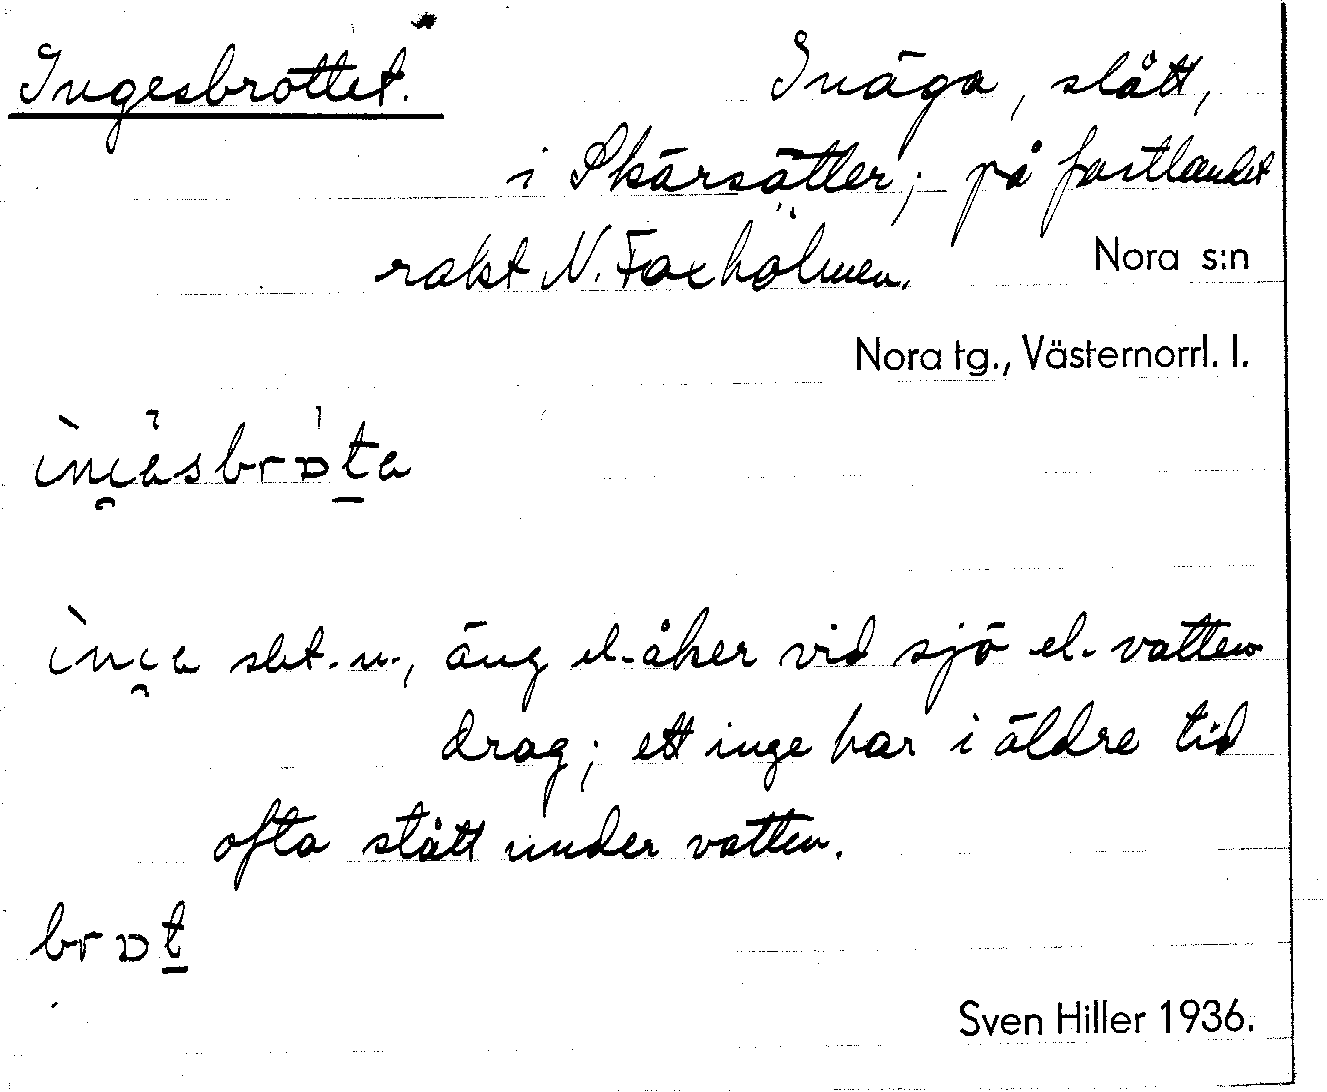 Ingesbrottet.
Inäga, slått,
i Skärsätter; på fastlandet
rakt N. Faxholmen.
Nora s:n
Nora tg., Västernorrl. l.
sbt. n., äng el. åker vid sjö el. vatten
drag; ett inge har i äldre tid
ofta stått under vatten.
Sven Hiller 1936.